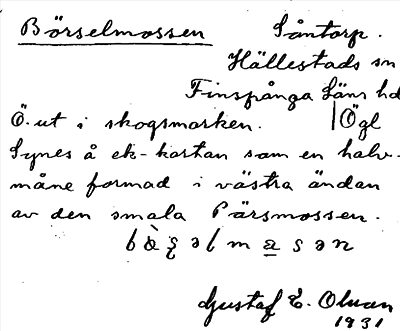 Börselmossen Såntorp.
Hällestads sn
Finspånga Läns hd
Ö. ut i skogsmarken. Ögl
Synes å ek-kartan som en halv-
måne formad i västra ändan
av den smala Pärsmossen.
Gustaf E. Olsson
1931